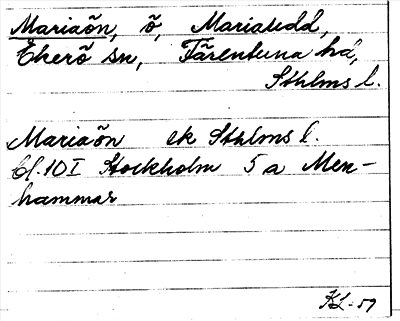 Mariaön, ö, Mariaudd,
Ekerö sn, Färentuna hd,
Sthlms l.
Mariaön ek Sthlms l.
bl. 10 I Stockholm 5 a Men-
hammar
KL-59